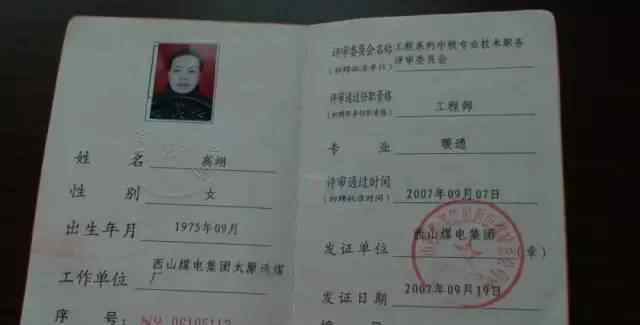 姓名
性别 女
出生年月 1975年09月
工作单位 西山煤电集团太原选煤
厂
序号:
评审委员会名称 工程系列中级专业技术职务
(初聘批准单位) 评审委员会
评审通过任职资格 工程师
(初聘职务任职资格)
专业 暖通
评审通过时间 2007年09月07日
(初聘批准时间)
发证单位 西山煤电集团 (章)
发证日期 2007年09月19日